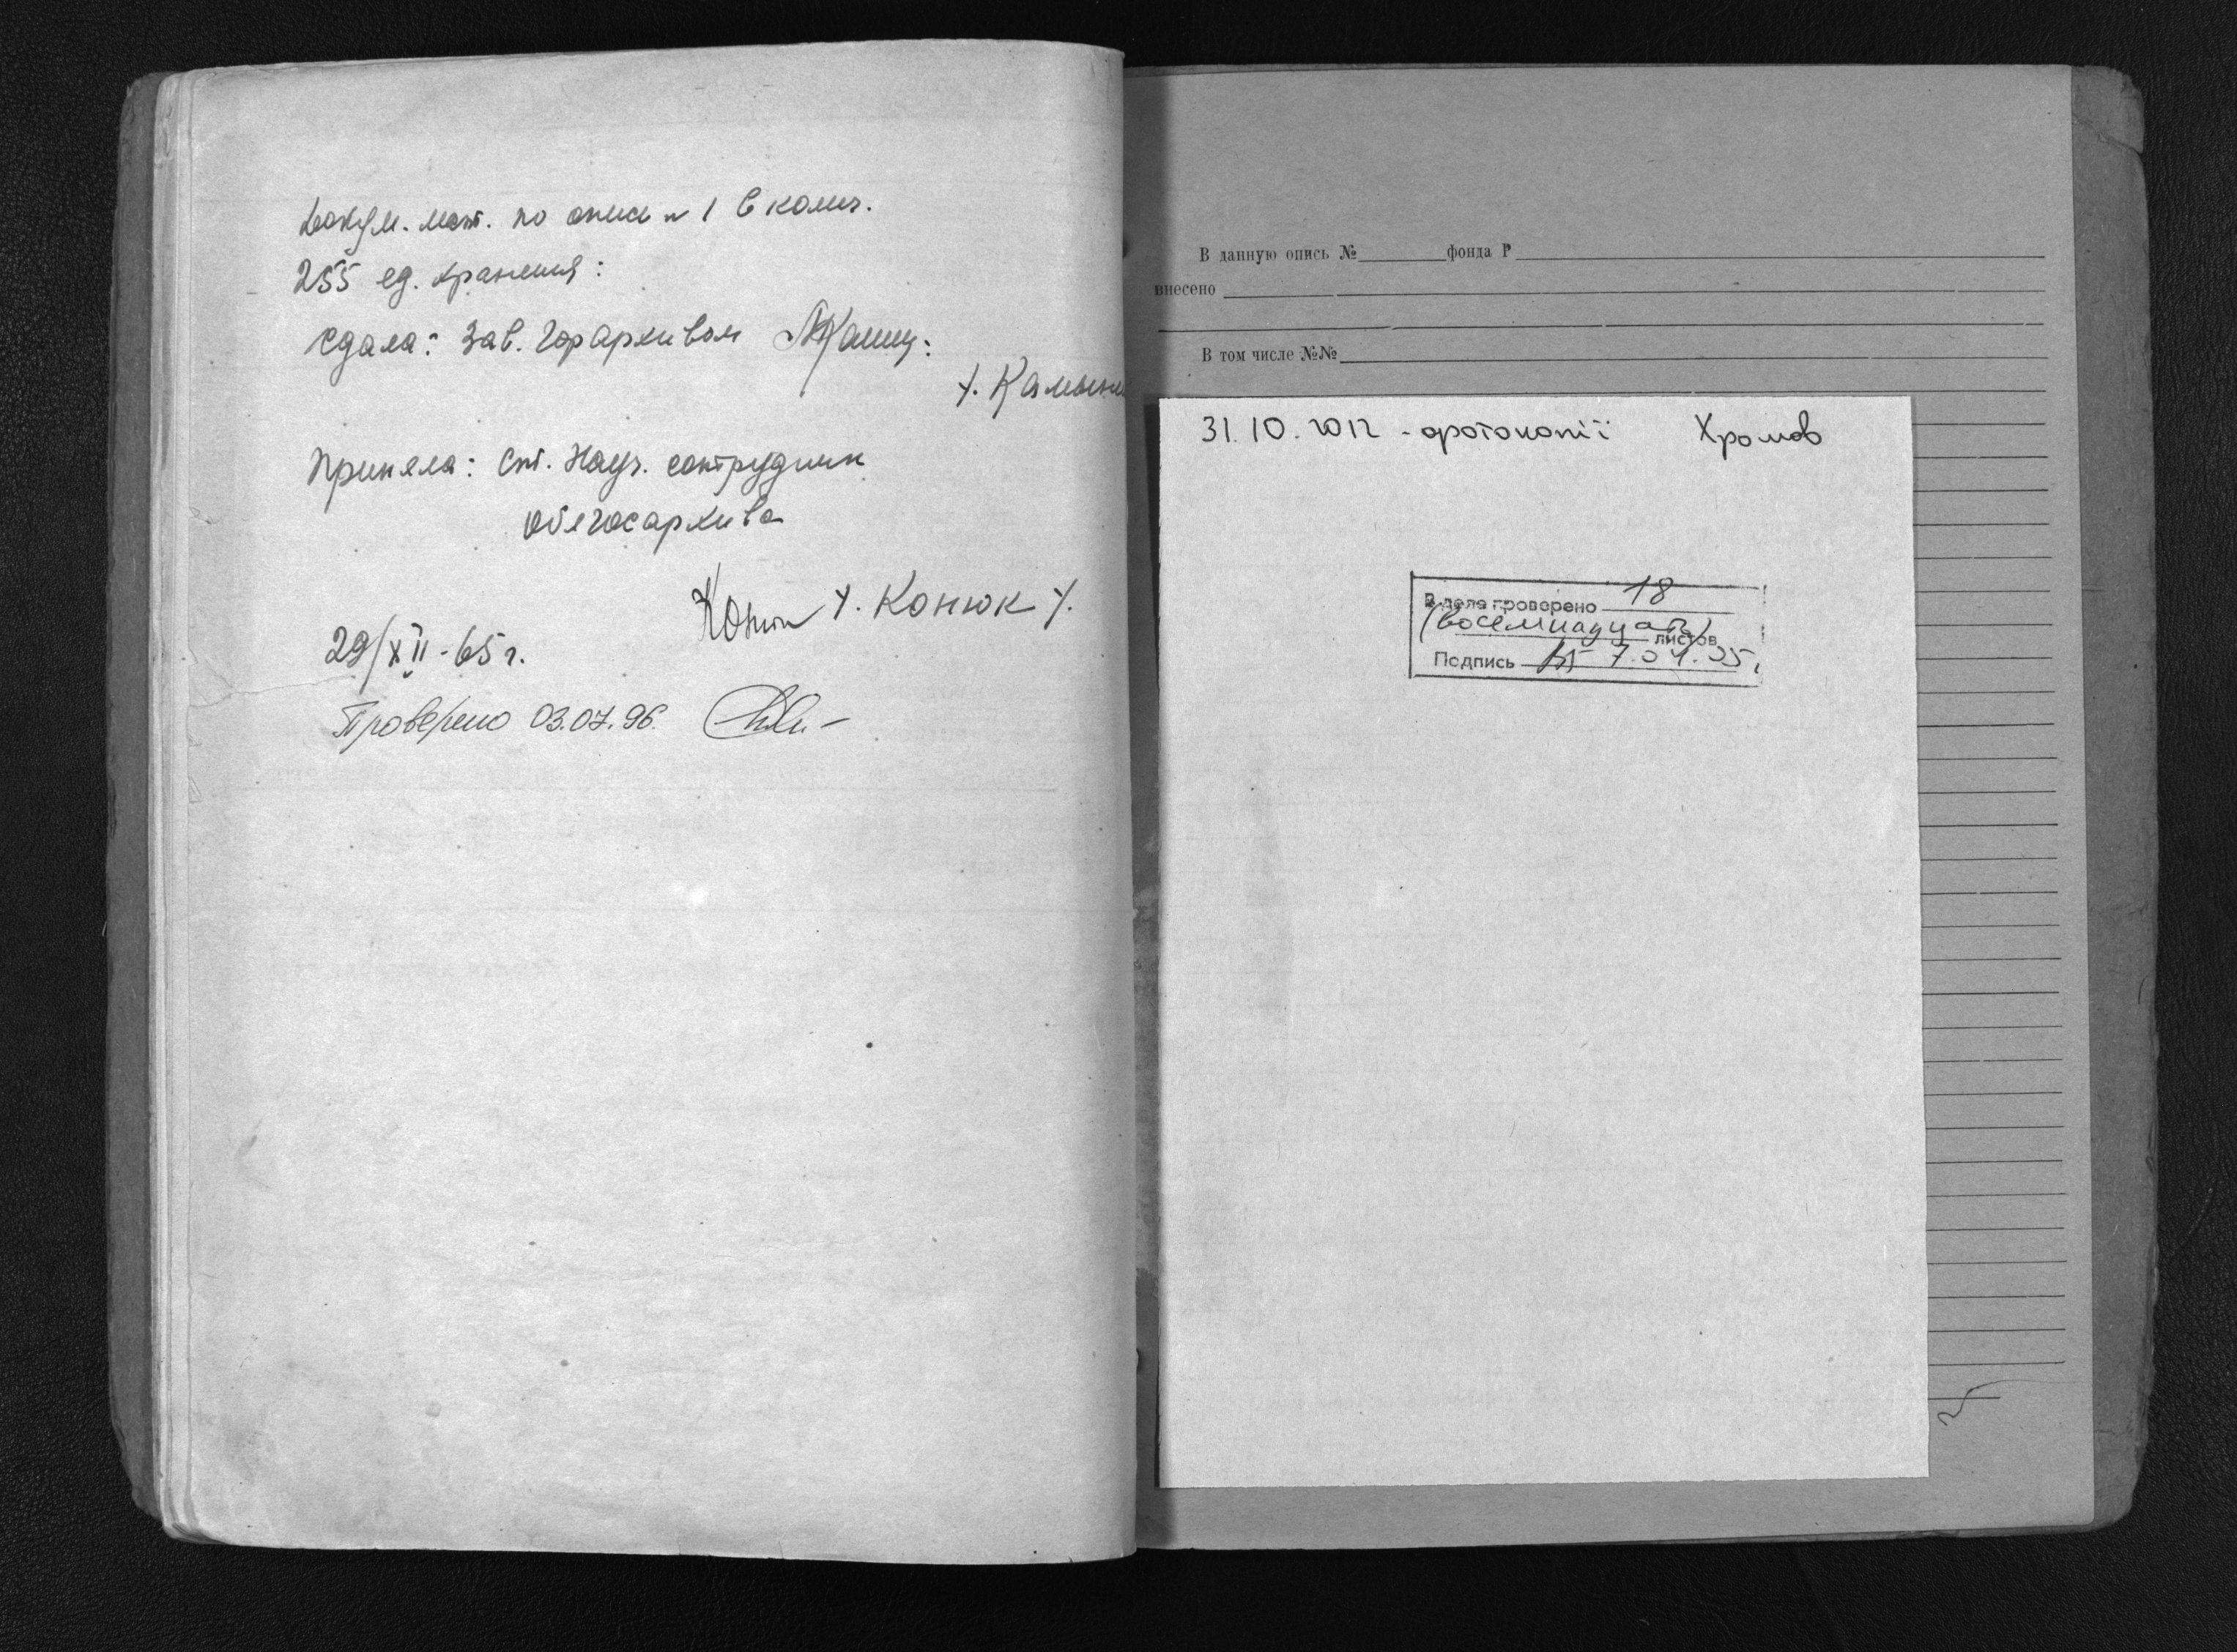 Докум. мат. по описи № 1 в колич.
255 ед. хранения:
Сдала: Зав. Горархивом
Приняла: Ст. Науч. сотрудник
Облгосархива
/. Конюк /.
29/XII-65 г.
Проверено 03.07.96.
В данную опись № фонда Р
внесено
В том числе №№
31.10.2012 - фотокопії Хромов
В деле проверено 18
(восемнадцать) листов
Подпись 7.04.05 г.